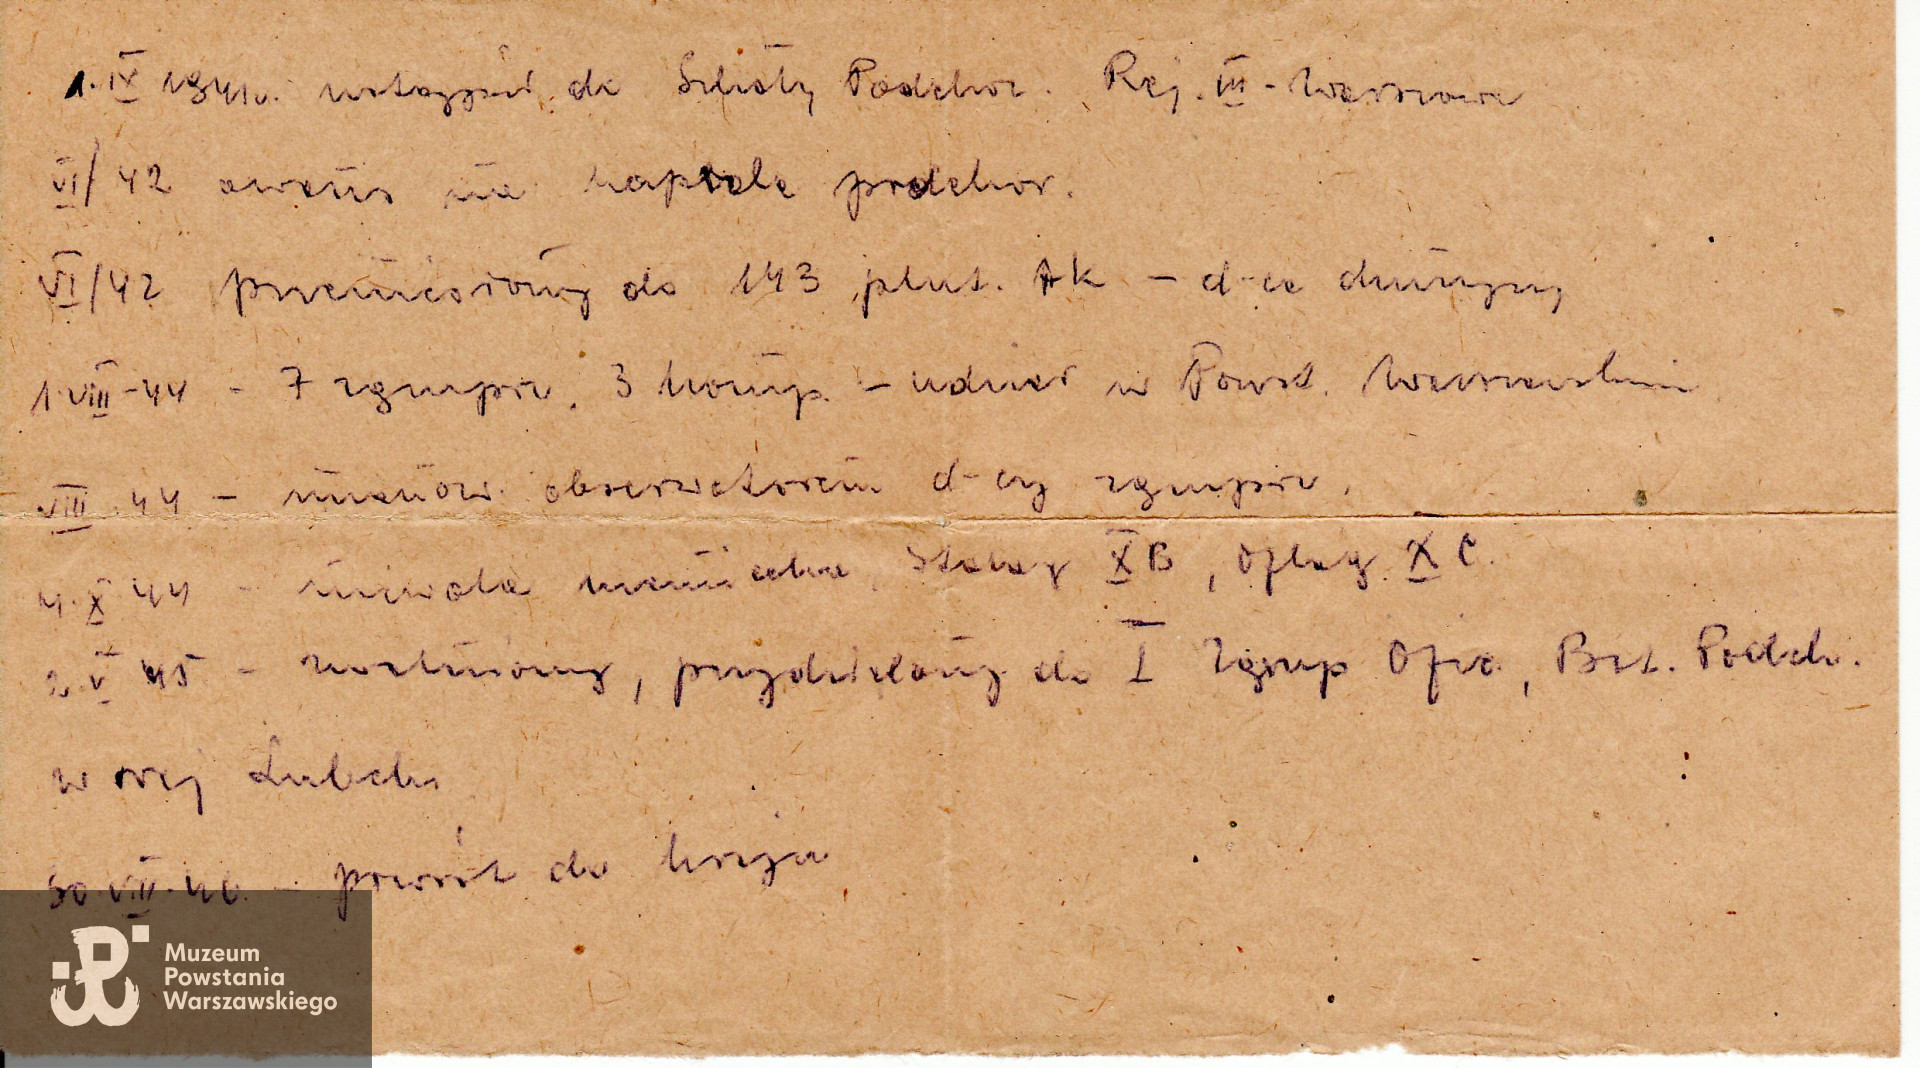 1.IX 1941r. wstąpił do Szkoły Podchor. Rej. III - Warszawa
VI/42 awans na kaprala podchor.
VI/42 przeniesiony do 143 plut. AK - d-ca drużyny
1 VIII-44 - 7 zgrupow. 3 komp. - udział w Powst. Warszawskim
VIII 44 - mianow. obserwatorem d-cy zgrupow.
4.X 44 - niewola niemiecka, Stalag XB, Oflag XC.
2.V 45 - zwolniony, przydzielony do I Zgrup Ofic, Bat. Podch.
w rej Lubeki
30 VIII.46. - powrót do kraju
Muzeum
Powstania
Warszawskiego